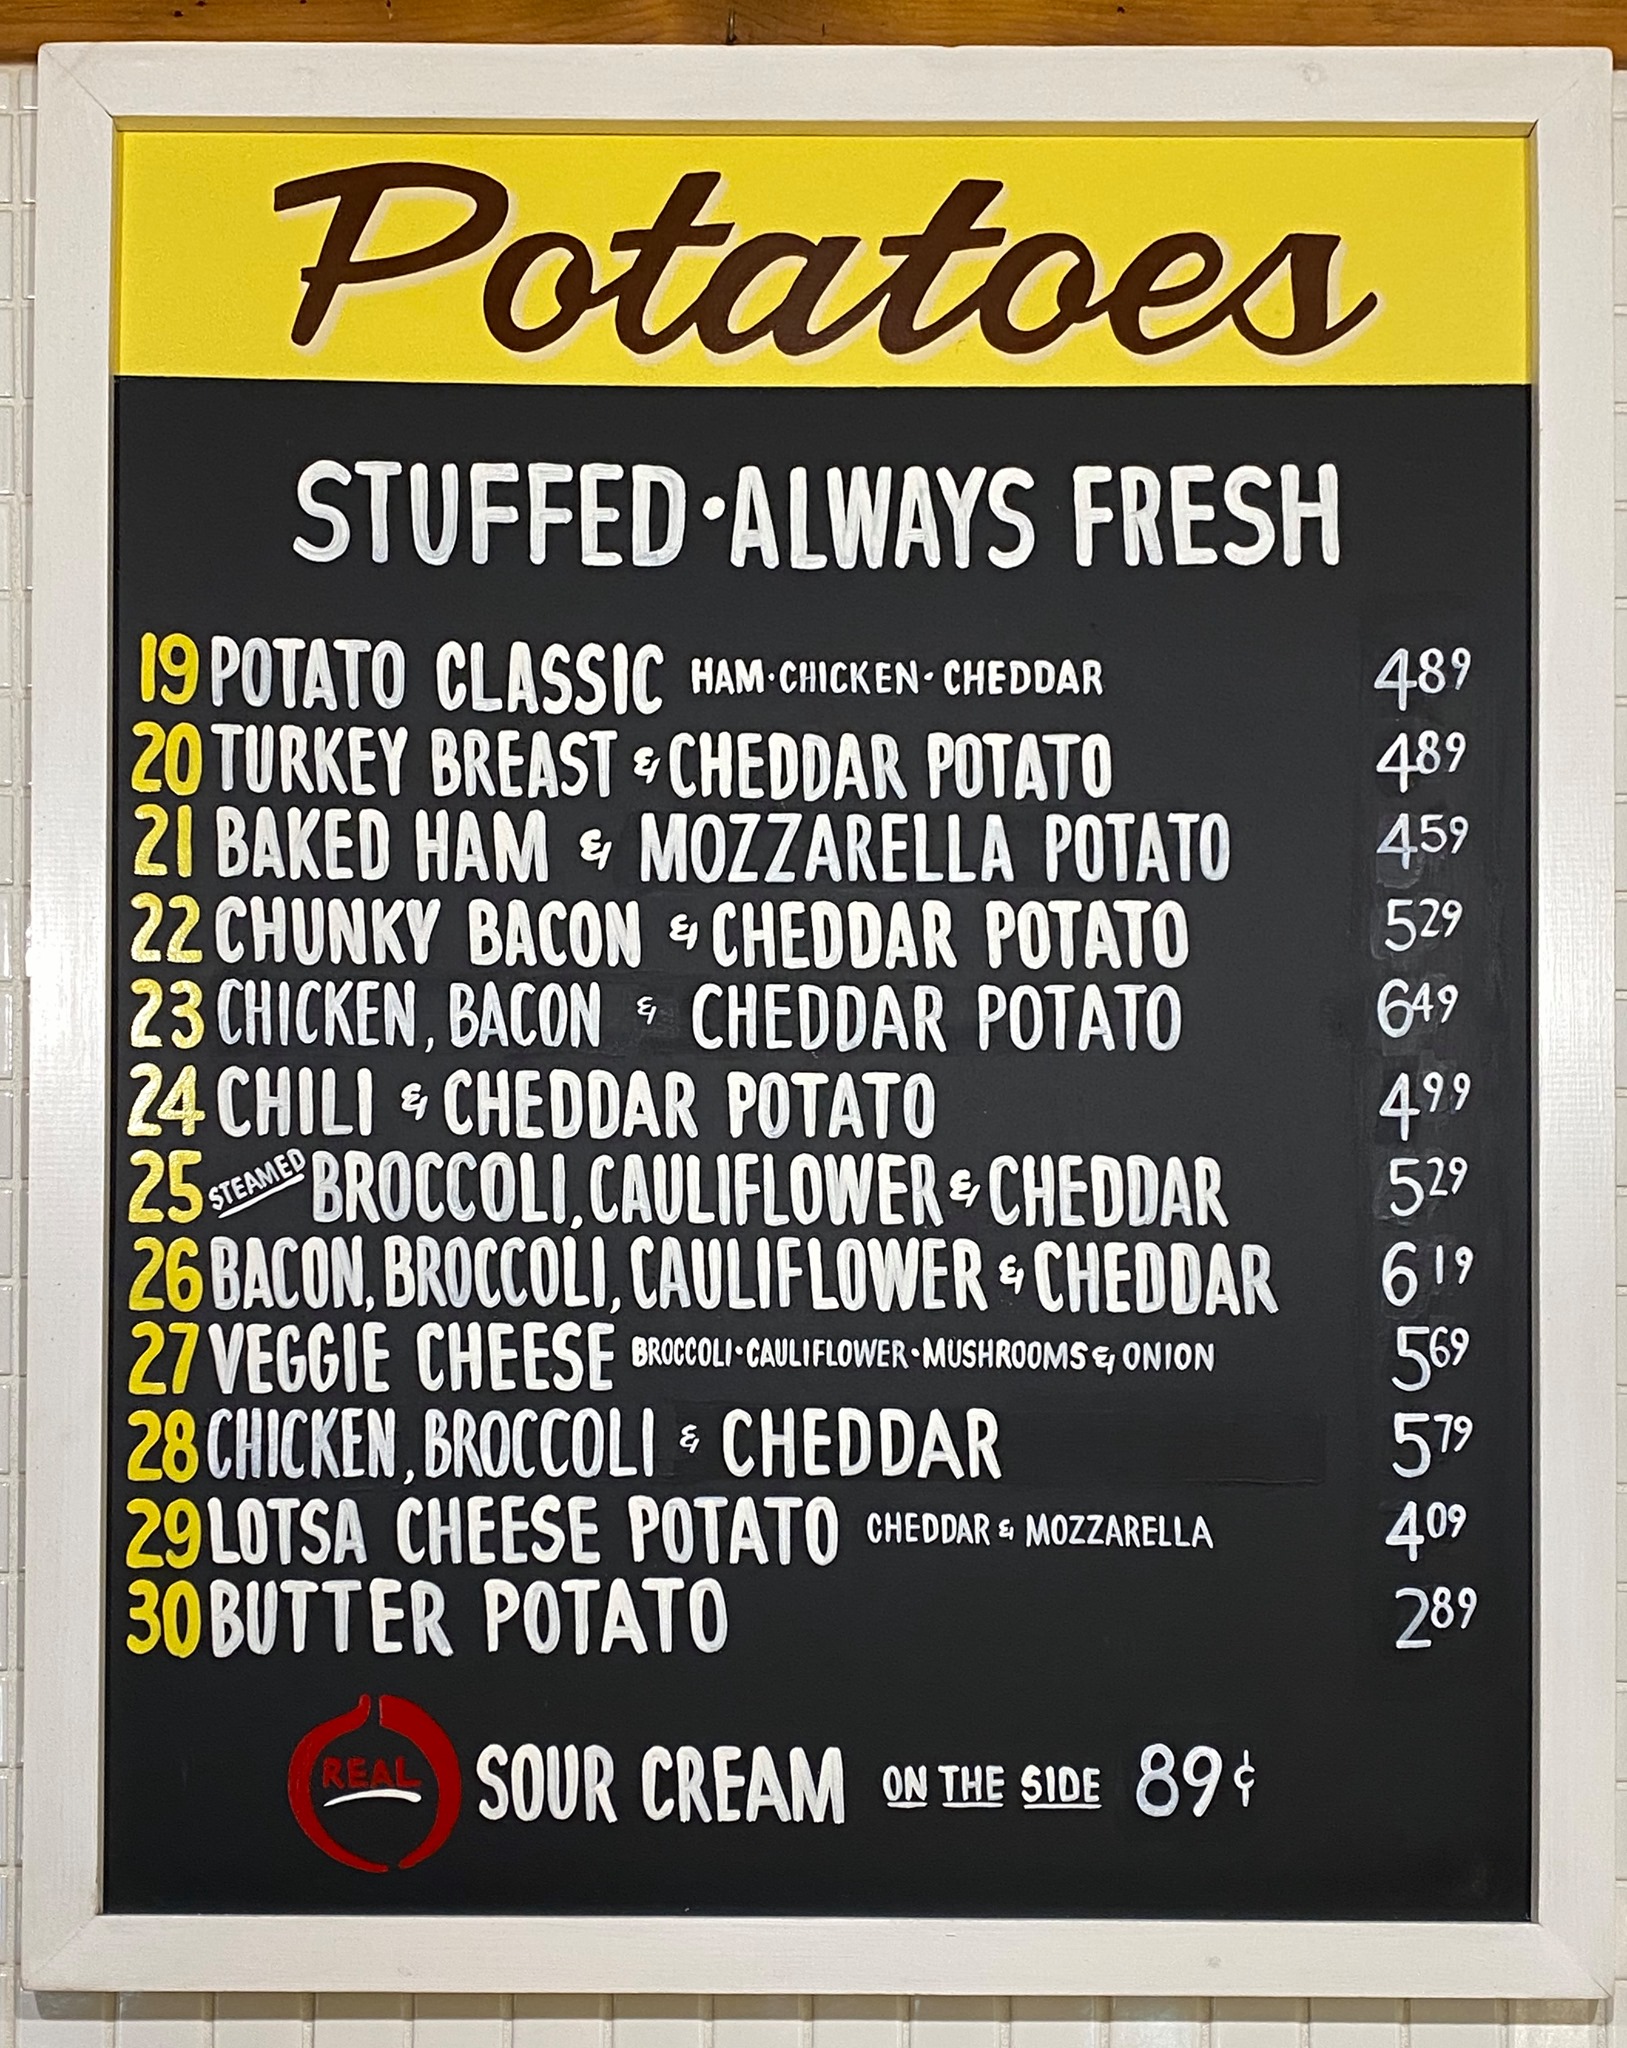 Potatoes
STUFFED · ALWAYS FRESH
19 POTATO CLASSIC HAM · CHICKEN · CHEDDAR 4 89
20 TURKEY BREAST & CHEDDAR POTATO 4 89
21 BAKED HAM & MOZZARELLA POTATO 4 59
22 CHUNKY BACON & CHEDDAR POTATO 5 29
23 CHICKEN, BACON & CHEDDAR POTATO 6 49
24 CHILI & CHEDDAR POTATO 4 99
25 STEAMED BROCCOLI, CAULIFLOWER & CHEDDAR 5 29
26 BACON, BROCCOLI, CAULIFLOWER & CHEDDAR 6 19
27 VEGGIE CHEESE BROCCOLI · CAULIFLOWER · MUSHROOMS & ONION 5 69
28 CHICKEN, BROCCOLI & CHEDDAR 5 79
29 LOTSA CHEESE POTATO CHEDDAR & MOZZARELLA 4 09
30 BUTTER POTATO 2 89
REAL SOUR CREAM ON THE SIDE 89¢